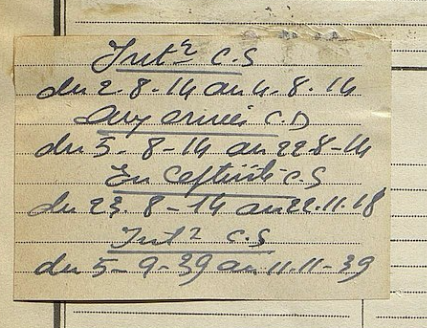 Intr C.S
du 2-8-14 au 4.8.14
Aux armées C.D
du 5-8-14 au 22-8-14
En captivité C.S
du 23.8-14 au 22.11.18
Intr C.S
du 5-9-39 au 11.11-39